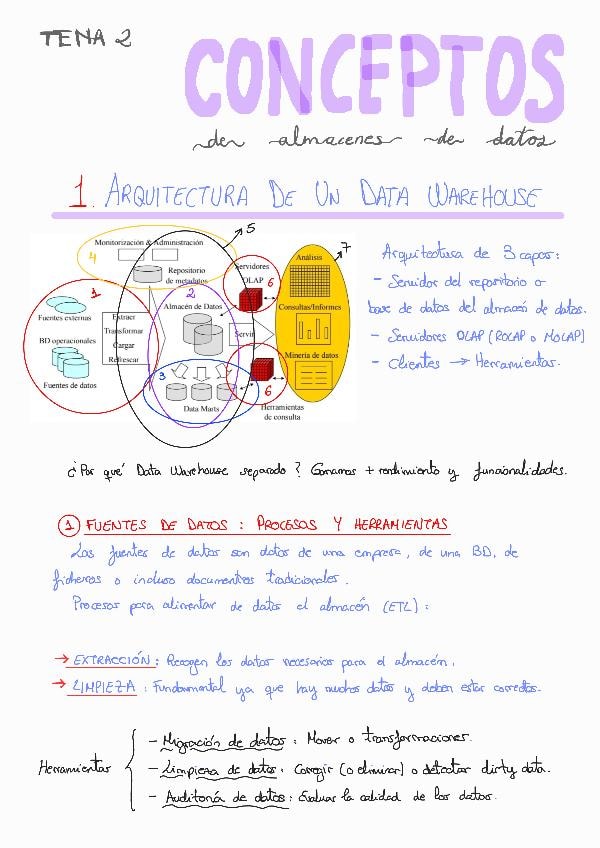 TEMA 2
CONCEPTOS
de almacenes de datos
1. ARQUITECTURA DE UN DATA WAREHOUSE
5
7
4
Monitorización & Administración
Repositorio
de metadatos
Servidores
OLAP
6
Análisis
1
2
Fuentes externas
BD operacionales
Fuentes de datos
Extraer
Transformar
Cargar
Refrescar
Almacén de Datos
Servir
Consultas/Informes
Minería de datos
3
Data Marts
6
Herramientas
de consulta
Arquitectura de 3 capas:
- Servidor del repositorio o
base de datos del almacén de datos.
- Servidores OLAP (ROLAP o MOLAP)
- Clientes → Herramientas.
¿Por qué Data Warehouse separado? Ganamos + rendimiento y funcionalidades.
1 FUENTES DE DATOS: PROCESOS Y HERRAMIENTAS
Las fuentes de datos son datos de una empresa, de una BD, de
ficheros o incluso documentos tradicionales.
Procesos para alimentar de datos el almacén (ETL):
→ EXTRACCIÓN: Recogen los datos necesarios para el almacén.
→ LIMPIEZA: Fundamental ya que hay muchos datos y deben estar correctos.
Herramientas
- Migración de datos: Mover o transformaciones.
- Limpieza de datos: Corregir (o eliminar) o detectar dirty data.
- Auditoría de datos: Evaluar la calidad de los datos.